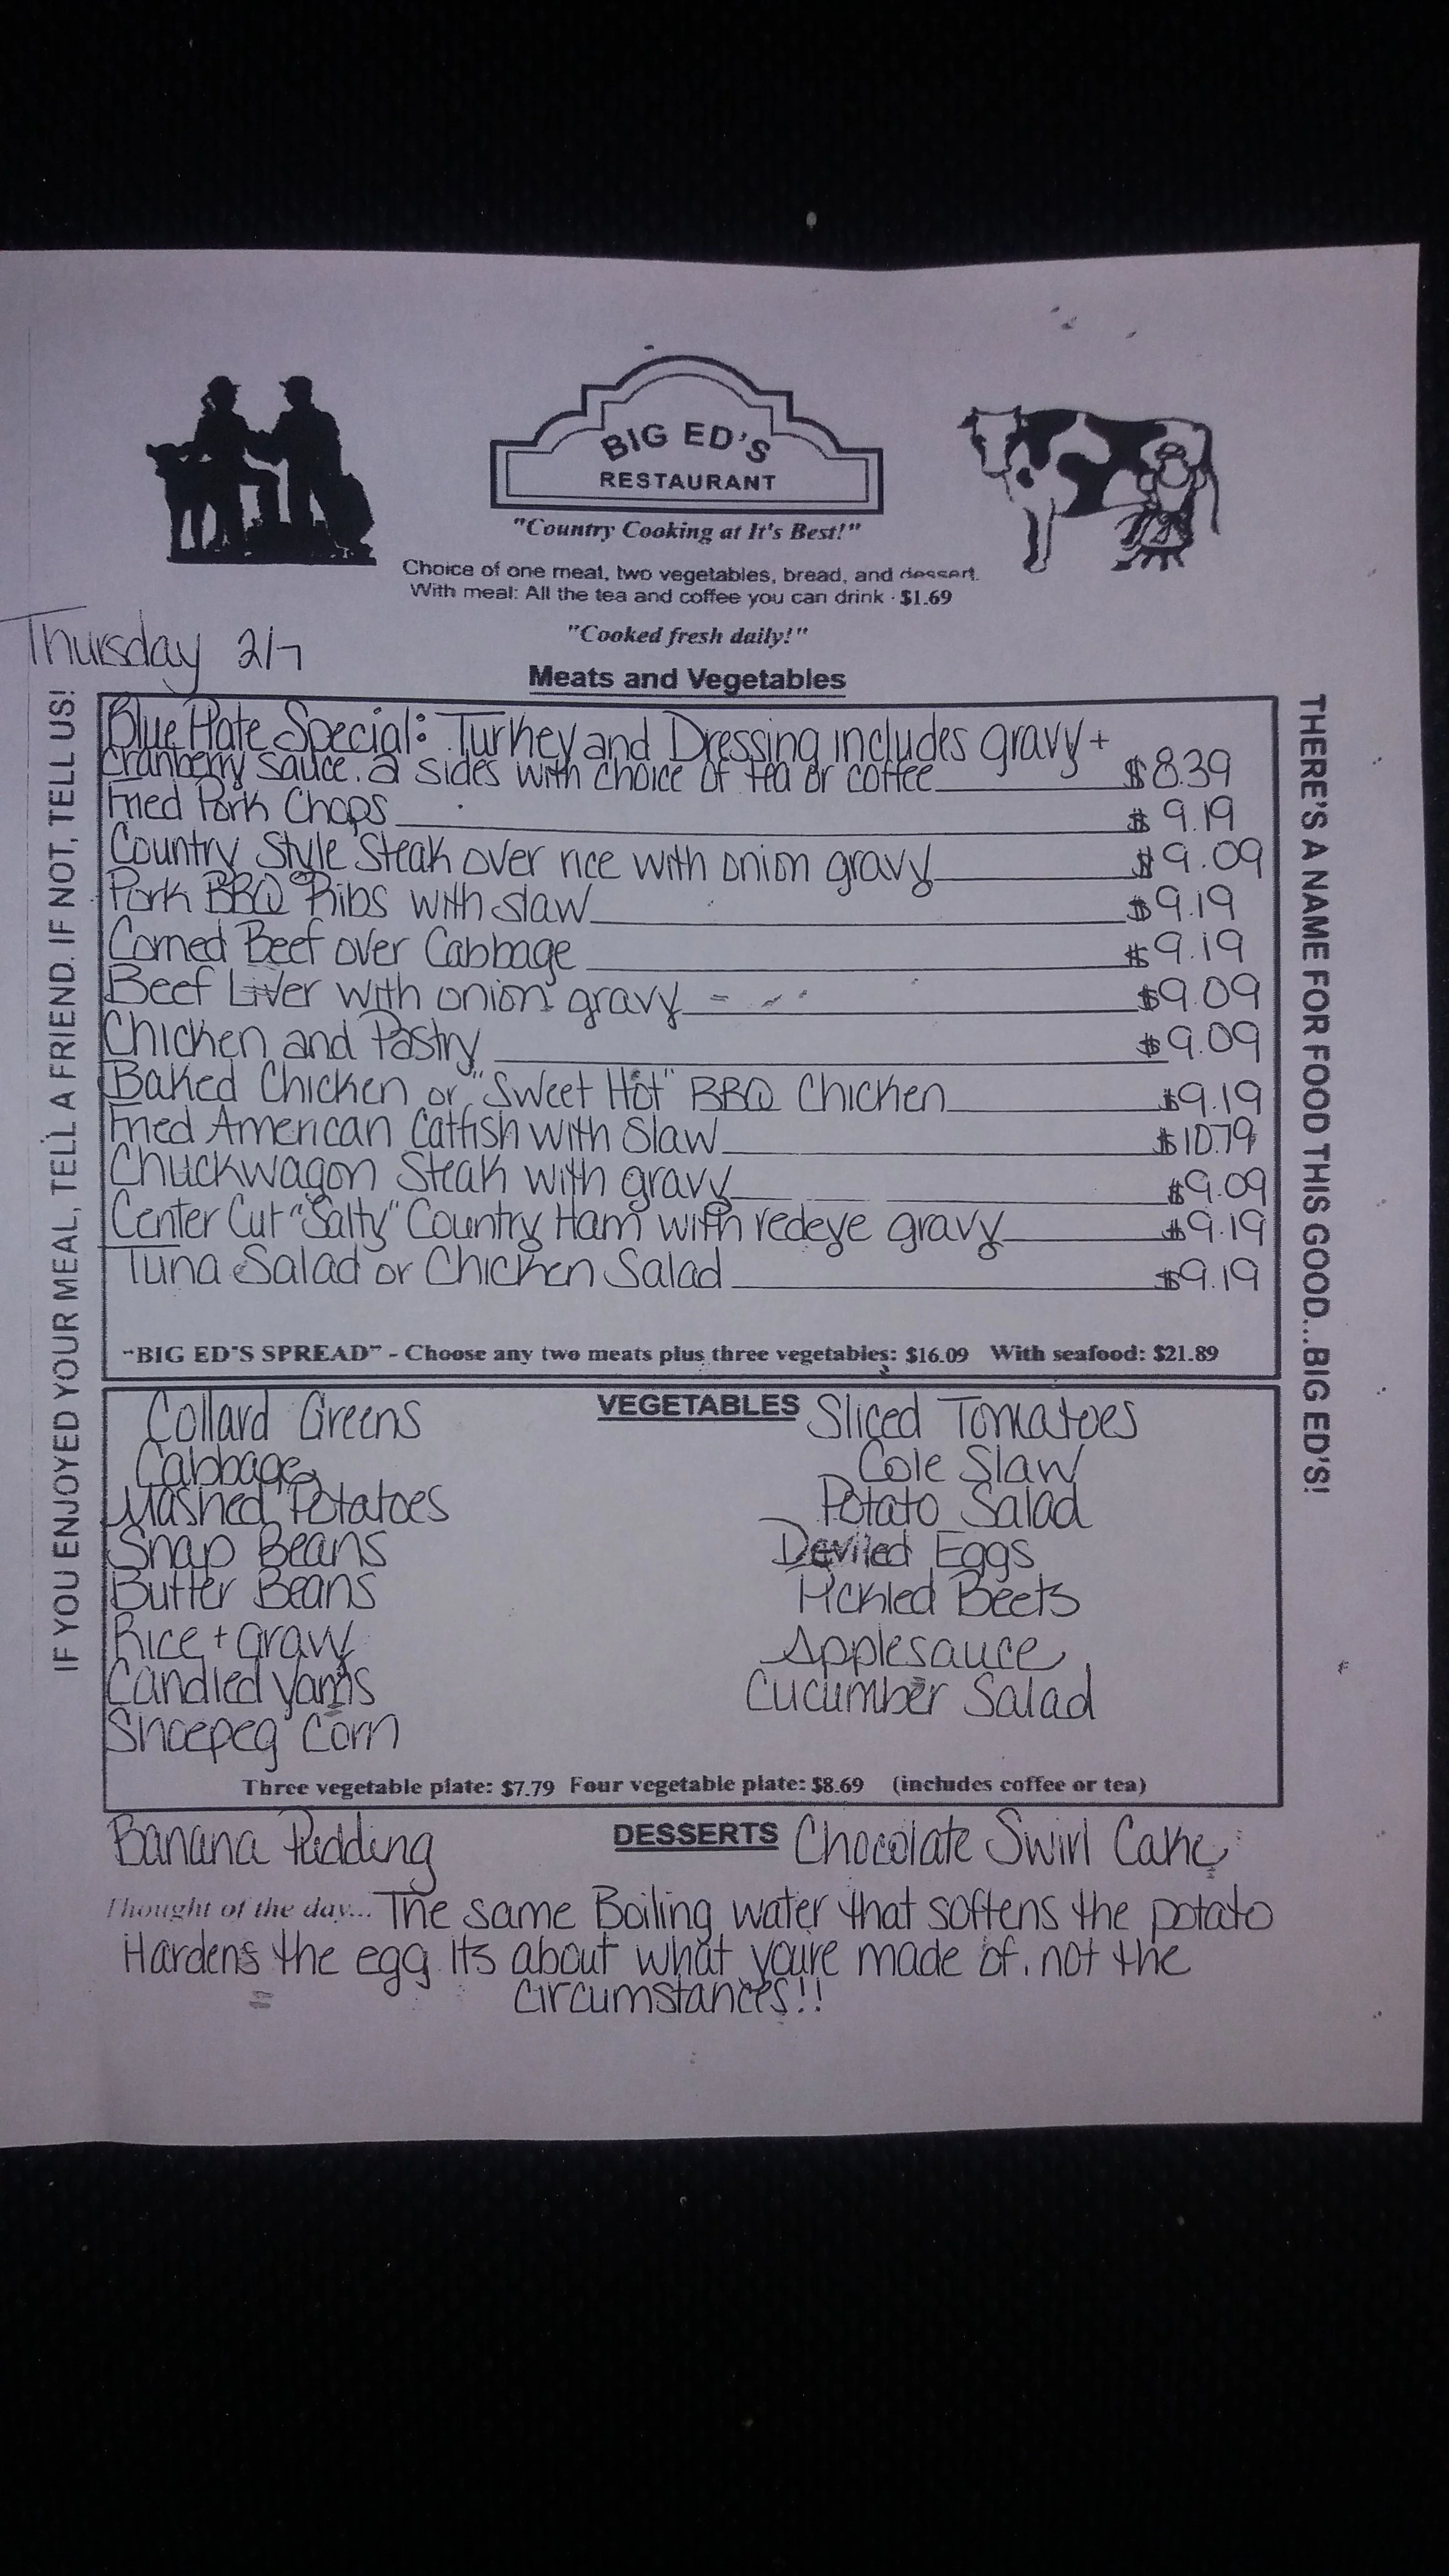 BIG ED'S
RESTAURANT
"Country Cooking at It's Best!"
Choice of one meat, two vegetables, bread, and dessert.
With meal: All the tea and coffee you can drink - $1.69
"Cooked fresh daily!"
Thursday 2/7
Meats and Vegetables
Blue Plate Special: Turkey and Dressing includes gravy +
cranberry sauce. 2 sides with choice of tea or coffee $8.39
Fried Pork Chops $9.19
Country Style Steak over rice with onion gravy $9.09
Pork BBQ Ribs with slaw $9.19
Corned Beef over Cabbage $9.19
Beef Liver with onion gravy $9.09
Chicken and Pastry $9.09
Baked Chicken or "Sweet Hot" BBQ Chicken $9.19
Fried American Catfish with Slaw $10.79
Chuckwagon Steak with gravy $9.09
Center Cut "Salty" Country Ham with redeye gravy $9.19
Tuna Salad or Chicken Salad $9.19
"BIG ED'S SPREAD" - Choose any two meats plus three vegetables: $16.09 With seafood: $21.89
IF YOU ENJOYED YOUR MEAL, TELL A FRIEND. IF NOT, TELL US!
THERE'S A NAME FOR FOOD THIS GOOD...BIG ED'S!
VEGETABLES
Collard Greens
Cabbage
Mashed Potatoes
Snap Beans
Butter Beans
Rice + Gravy
Candied Yams
Shoepeg Corn
Sliced Tomatoes
Cole Slaw
Potato Salad
Deviled Eggs
Pickled Beets
Applesauce
Cucumber Salad
Three vegetable plate: $7.79 Four vegetable plate: $8.69 (includes coffee or tea)
Banana Pudding DESSERTS Chocolate Swirl Cake
Thought of the day... The same Boiling water that softens the potato
Hardens the egg. Its about what you're made of, not the
circumstances!!